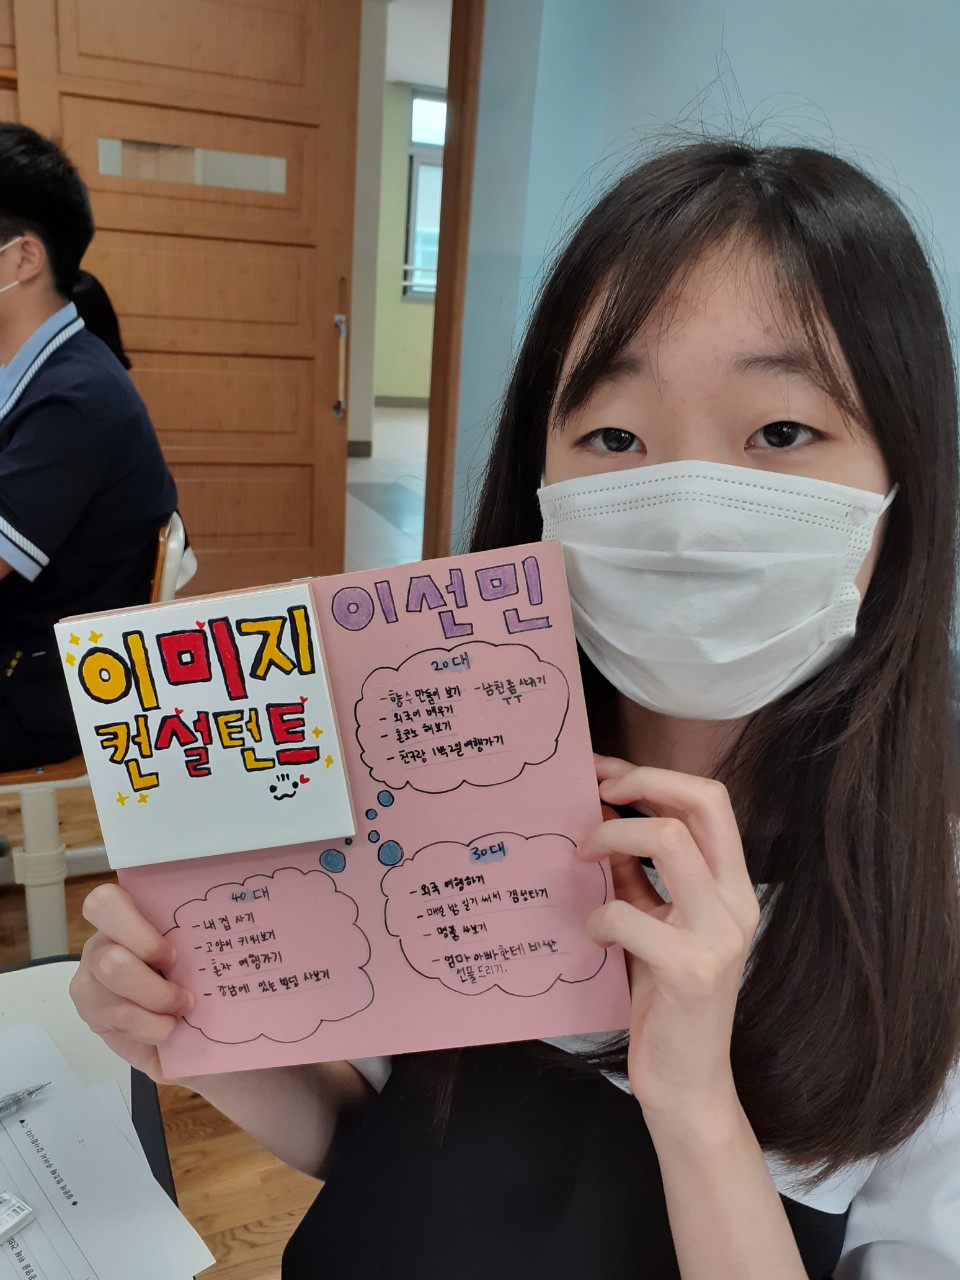 이미지
컨설턴트
이선민
20대
- 향수 만들어 보기
- 남친쫌 사귀기
- 외국어 배우기
- 혼코노 해보기
- 친구랑 1박2일 여행가기
30대
- 외국 여행하기
- 매일 밤 일기 써서 갬성타기
- 명품 사보기
- 엄마 아빠한테 비싼
선물드리기.
40대
- 내 집 사기
- 고양이 키워보기
- 혼자 여행가기
- 강남에 있는 빌딩 사보기